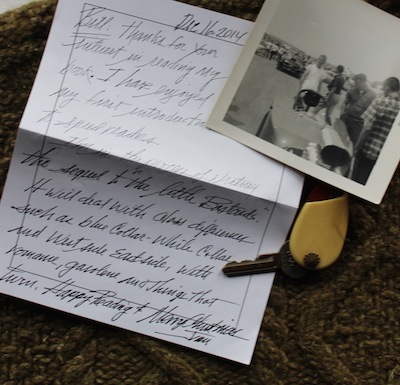 Dec 16, 2014
Bill, Thanks for your
interest in reading my
book. I have enjoyed
my first introduction
to speed readers.
I'm in the process of
the sequel to "the little Bastards."
It will deal with class differences
such as blue Collar-White Collar
and West side East side, with
romance, gasoline and things that
turn. Happy Reading & Merry Christmas